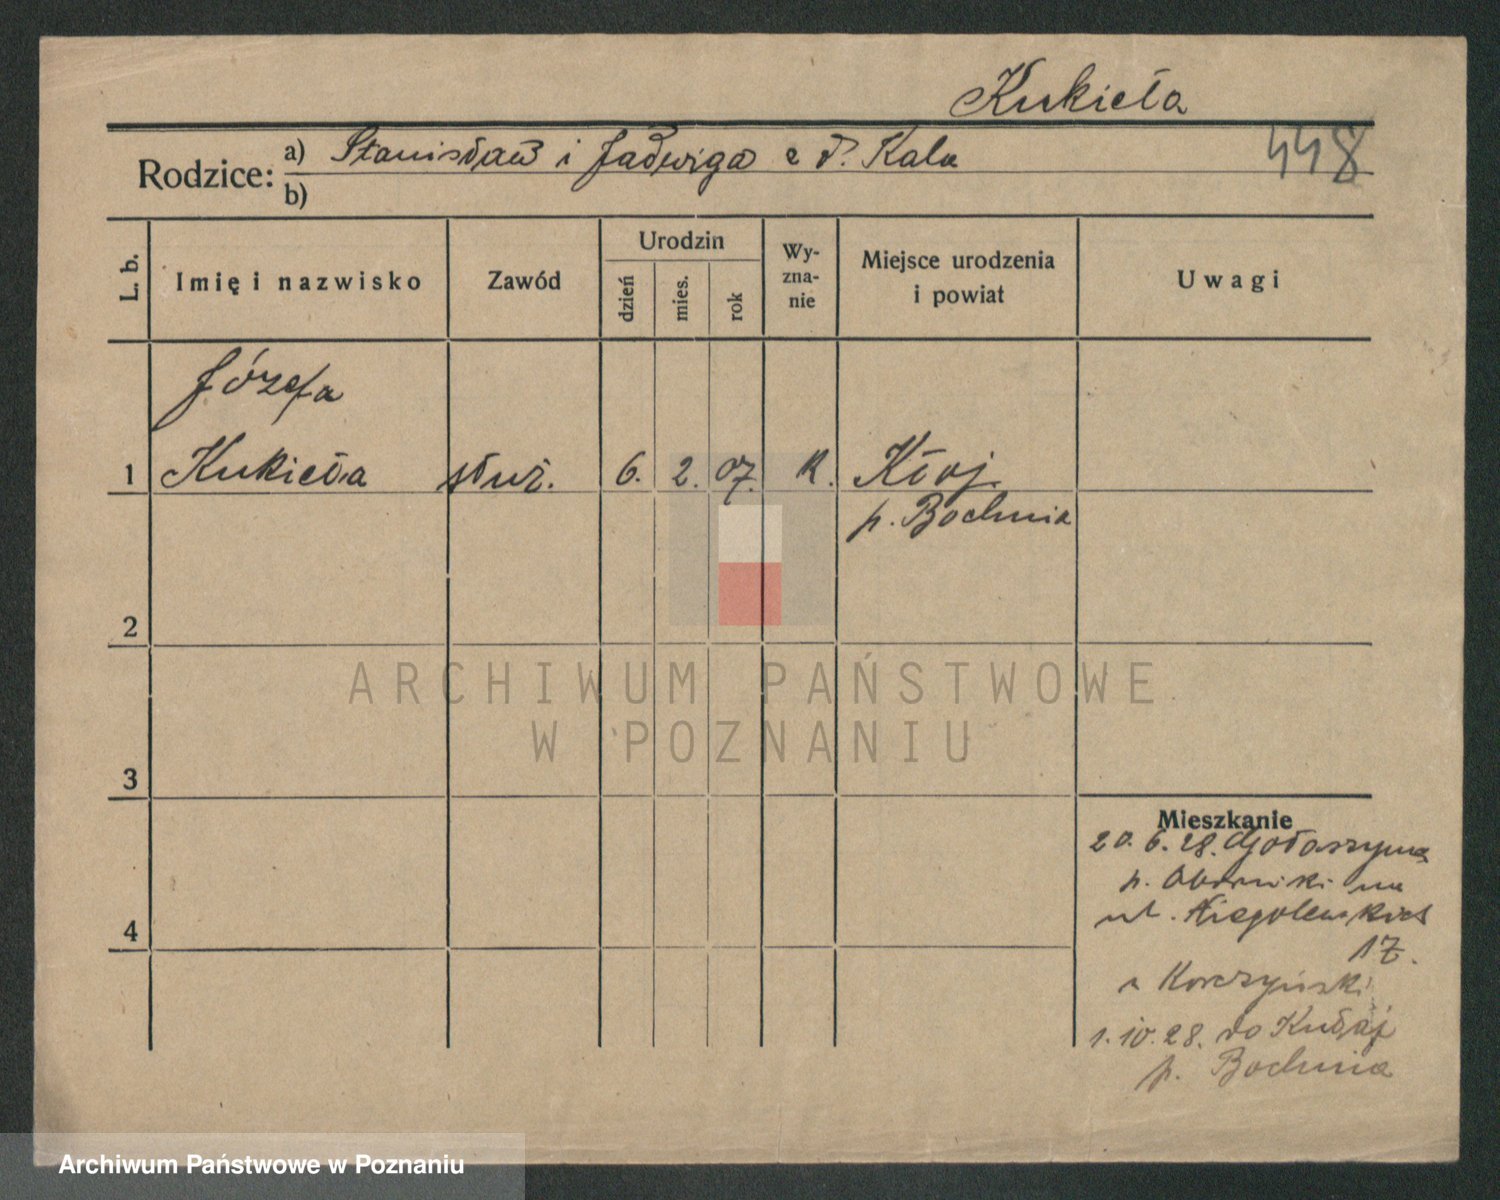 Kukieła
448
Rodzice: a) Stanisław i Jadwiga z d. Kala
b)
L. b.
Imię i nazwisko
Zawód
Urodzin
dzień
mies.
rok
Wy-
zna-
nie
Miejsce urodzenia
i powiat
Uwagi
Józefa
1 Kukieła służ. 6. 2. 07. R. Kłoj.
p. Bochnia
2
ARCHIWUM PAŃSTWOWE
W POZNANIU
3
Mieszkanie
20. 6. 28. Gołaszyna
p. Oborniki na
ul. Niegolewskich
4
17.
Korczyński
1. 10. 28. do Kułaj
p. Bochnia
Archiwum Państwowe w Poznaniu